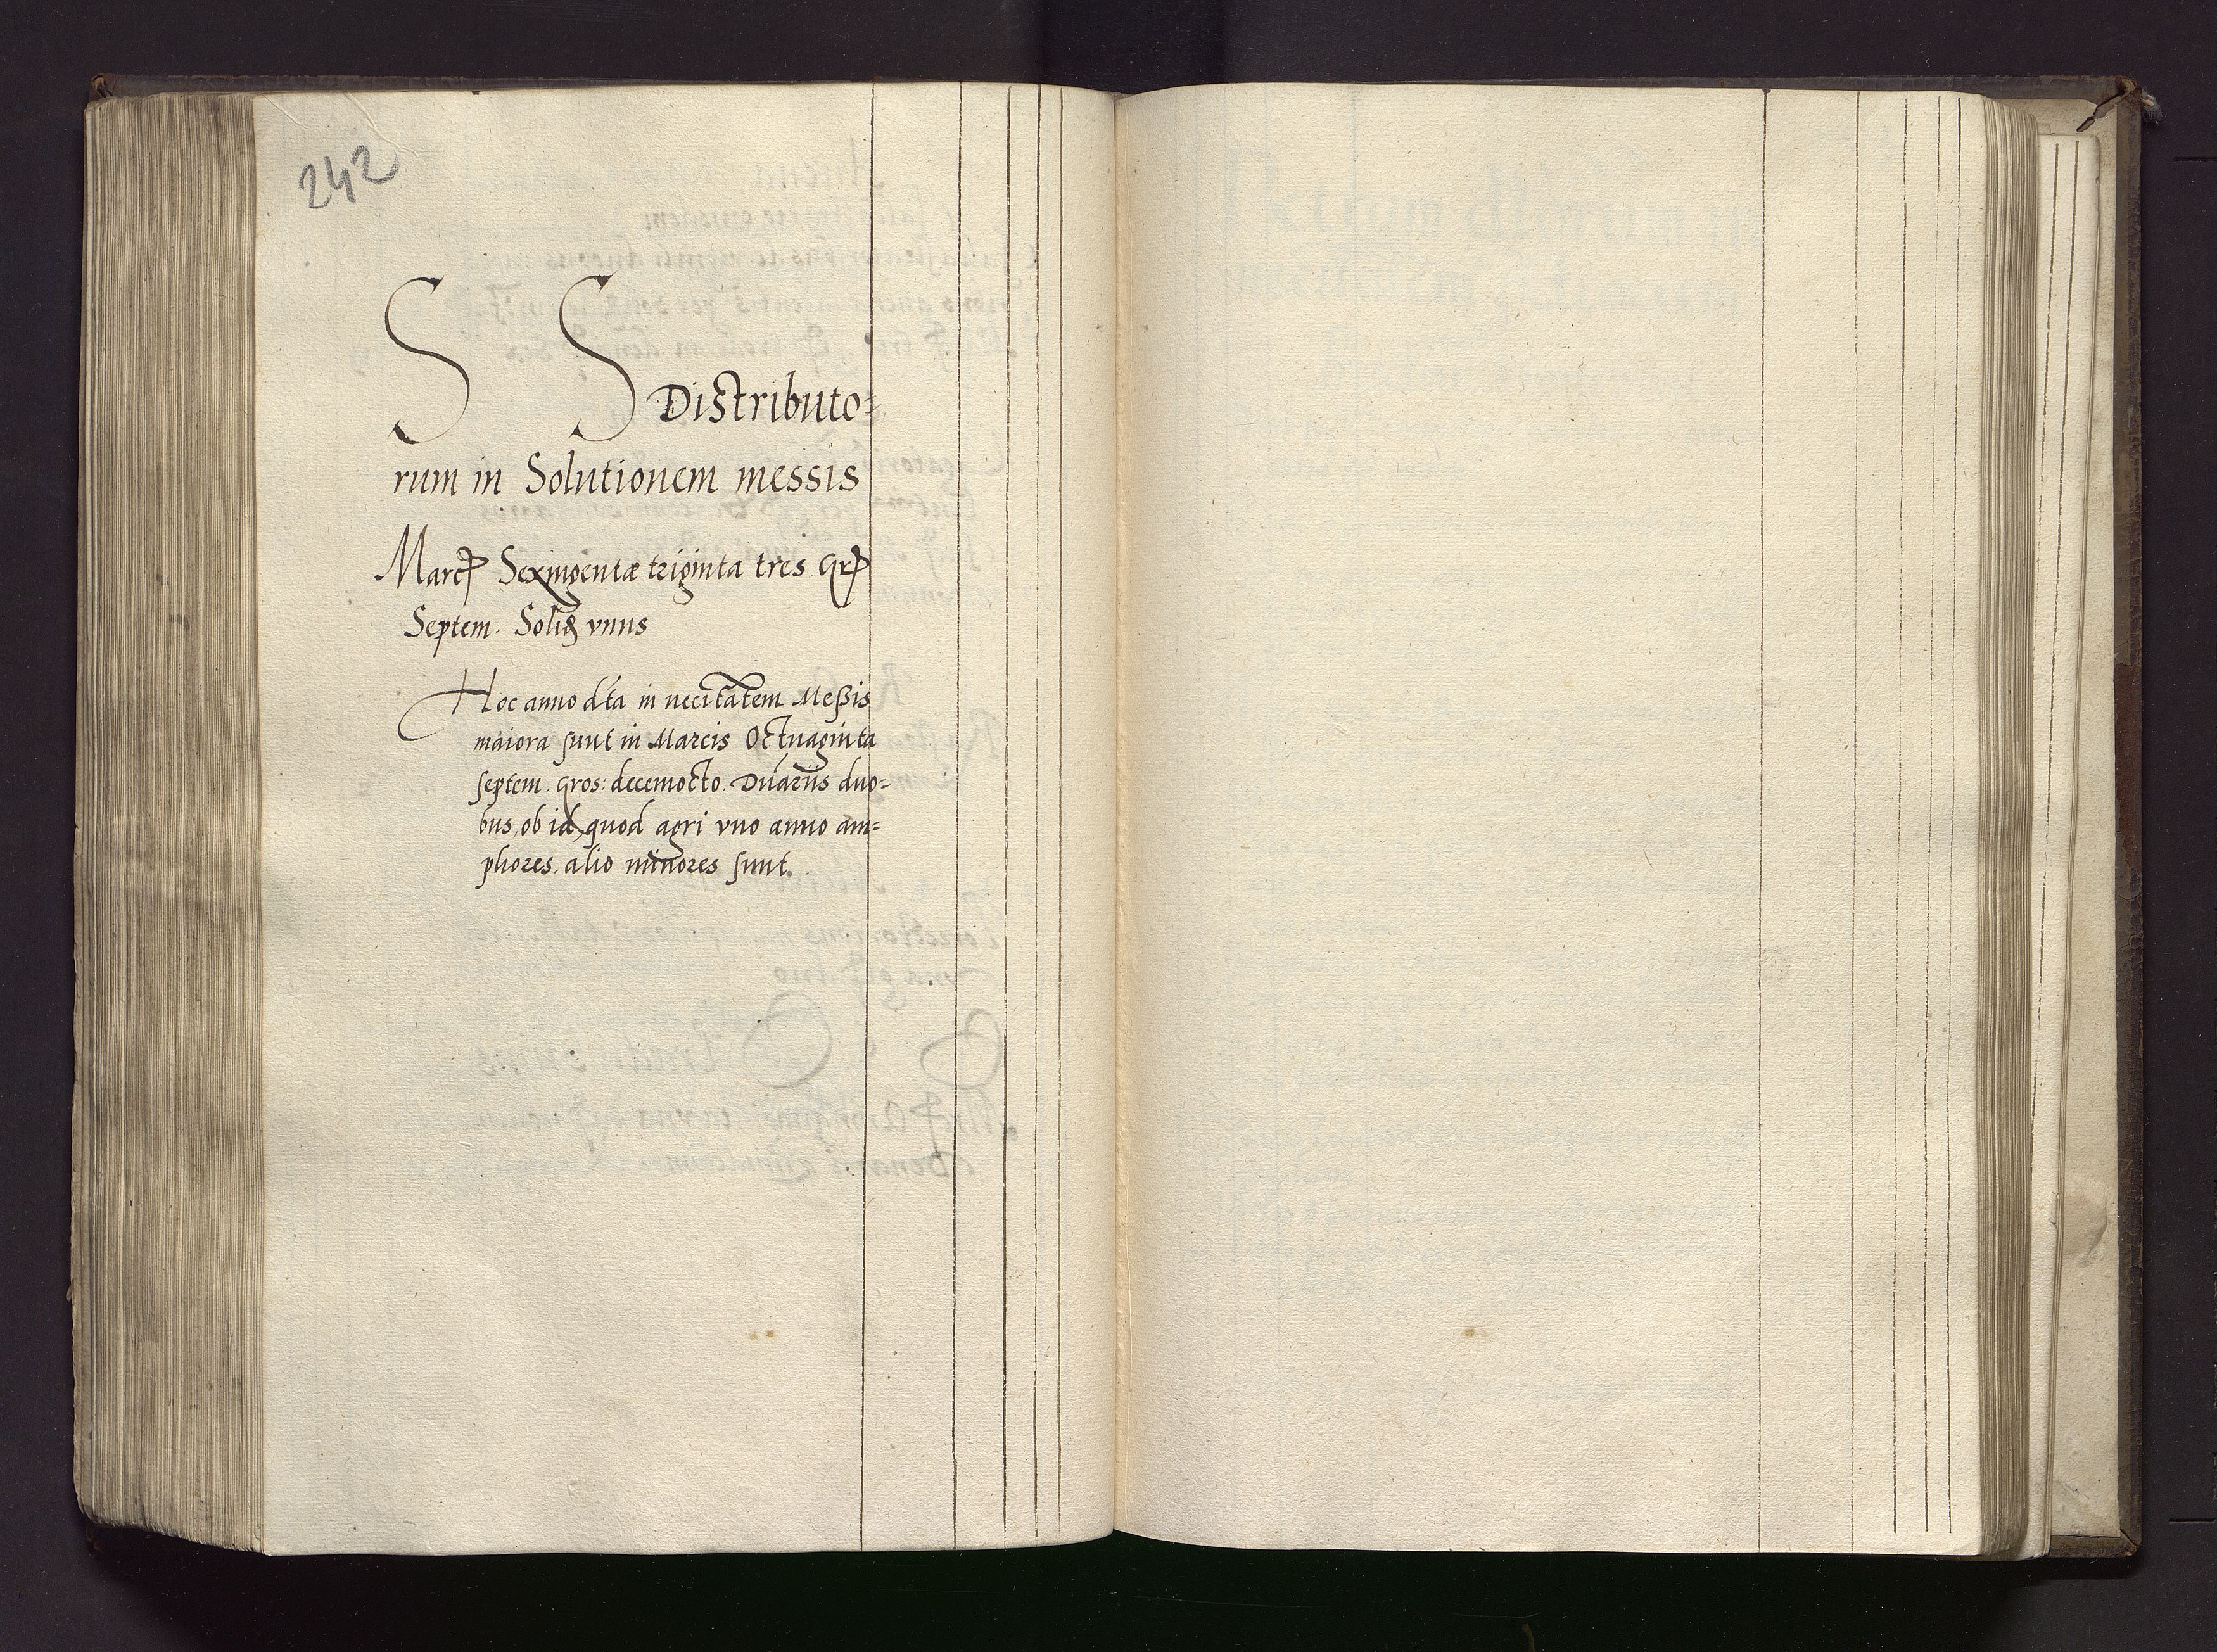 242
S S Distributo=
rum in Solutionem messis
Marcꝭ Sexingentæ triginta tres Grꝭ
Septem. Solið vnus
Hoc anno dt́a in necītatem Meßis
maiora sunt in Marcis Octuaginta
septem. Gros: decemocto. Duariis duo=
bus, ob id, quod agri vno anno am=
pliores. alio minores sunt.